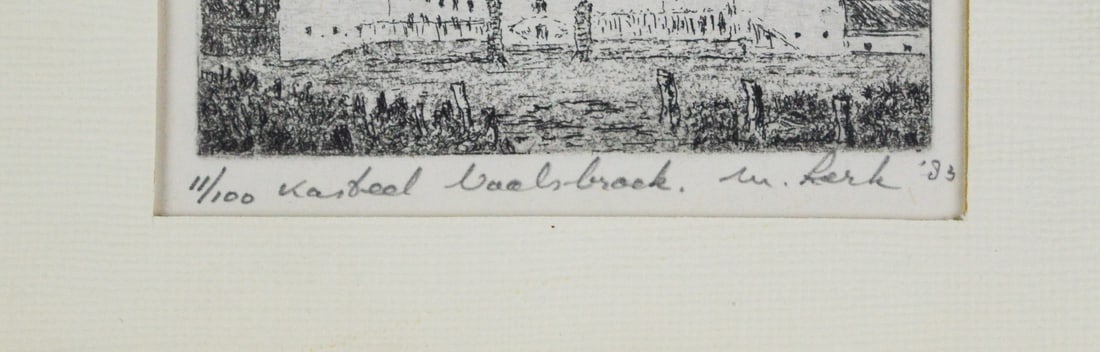 11/100 Kasteel Vaalsbroek. M. Kerk '83